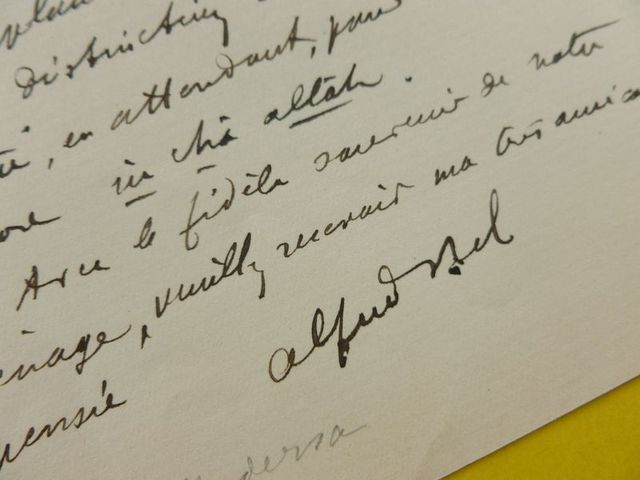 distinction
, en attendant, pour
in châ allah.
Avec le fidèle souvenir de notre
ménage, veuillez recevoir ma très amicale
pensée
Alfred Bel
dersa